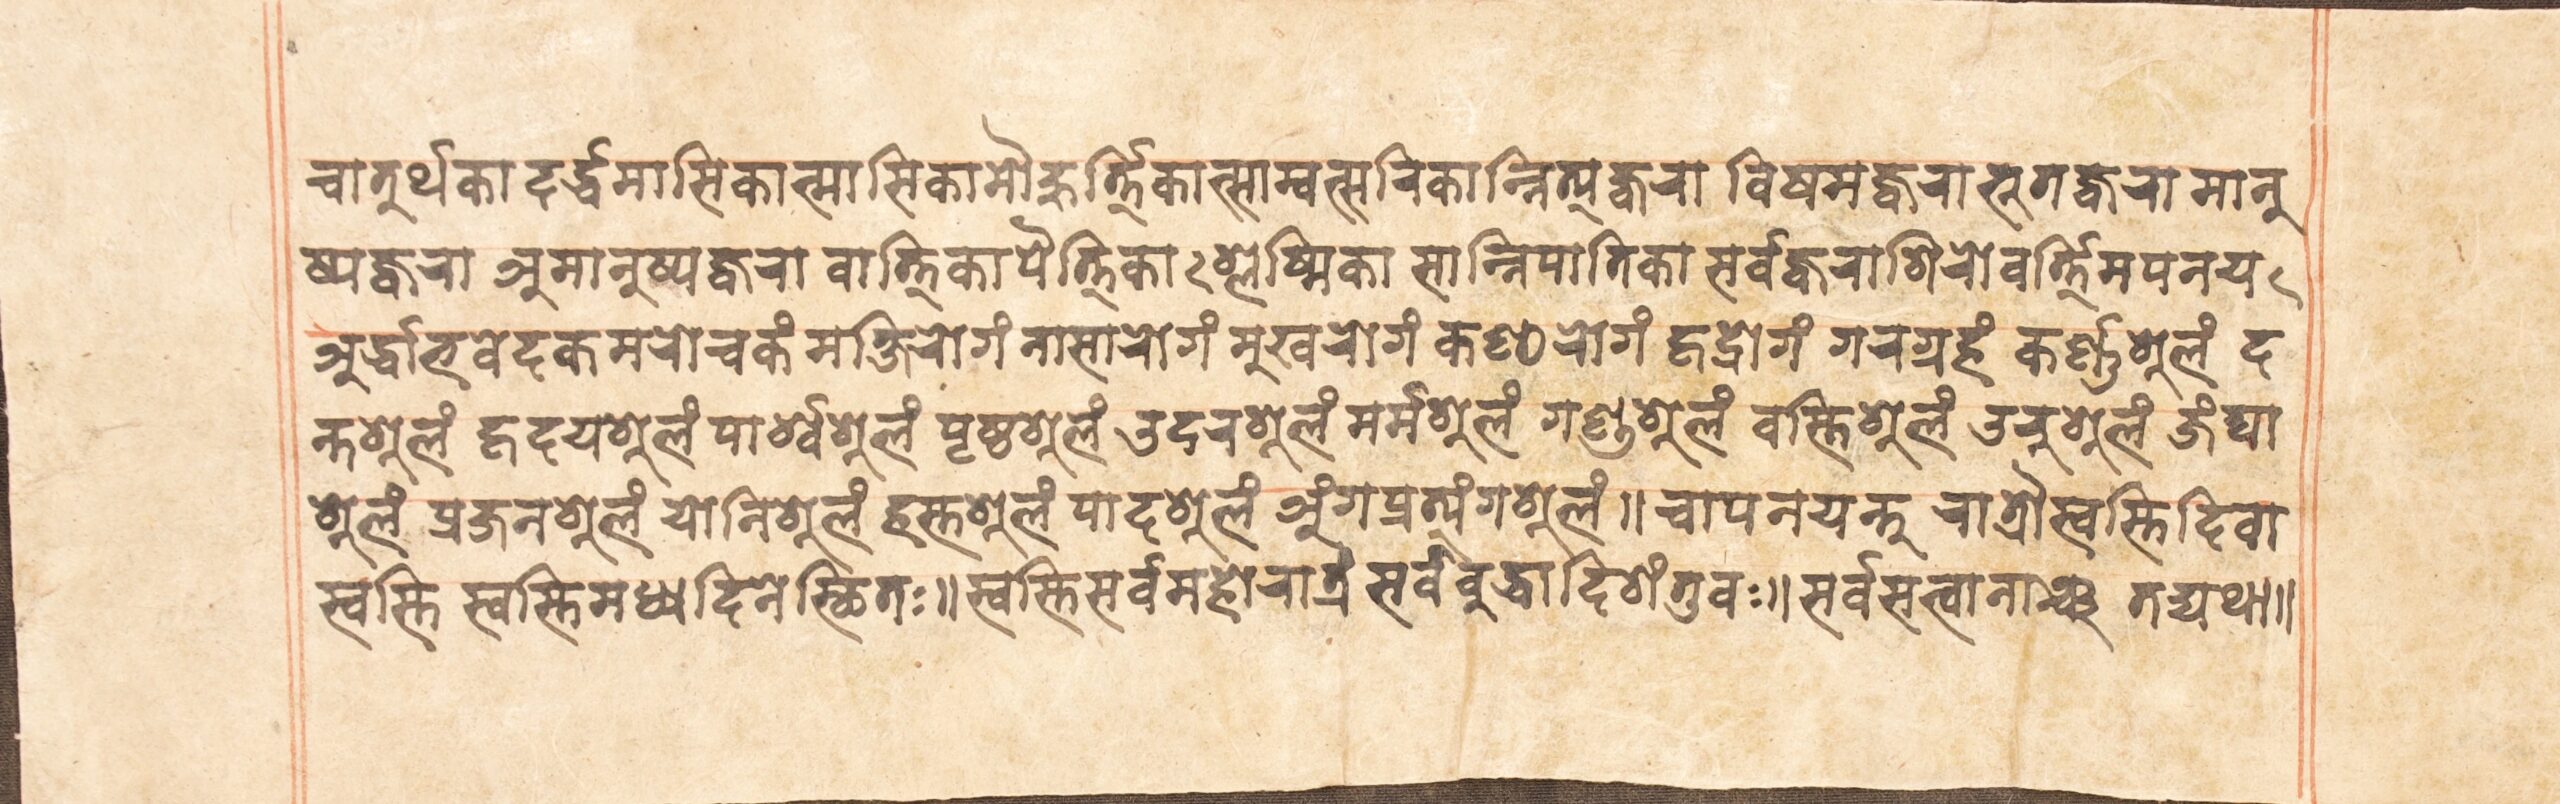 चातुर्थका दर्द्धमासिकात्मासिकामौहुर्त्तिकात्साम्वत्सरिकान्नित्यज्वरा विषमज्वरा भूतज्वरा मानु
ष्यज्वरा अमानुष्यज्वरा वात्तिकापैत्तिका श्लेष्मिका सान्निपातिका सर्वज्वराशिरोवर्त्तिमपनय
अर्द्धावभेदकमरोचकं मक्षिरोगं नासारोगं मुखरोगं कण्ठरोगं हृद्रोगं गरग्रहं कर्ण्णशूलं द
न्तशूलं हृदयशूलं पार्श्वेशूलं पृष्ठशूलं उदरशूलं मर्मशूलं गण्डशूलं वस्तिशूलं उरुशूलं जंघा
शूलं प्रजनशूलं योनिशूलं हस्तशूलं पादशूलं अंगप्रत्यंगशूलं॥ चापनयन्तु रात्रौस्वस्ति दिवा
स्वस्ति स्वस्तिमध्यदिनेस्थितः॥ स्वस्तिसर्वमहोरात्रं सर्वबुद्धादिशंतुवः॥ सर्वसत्वानाञ्च तद्यथा॥